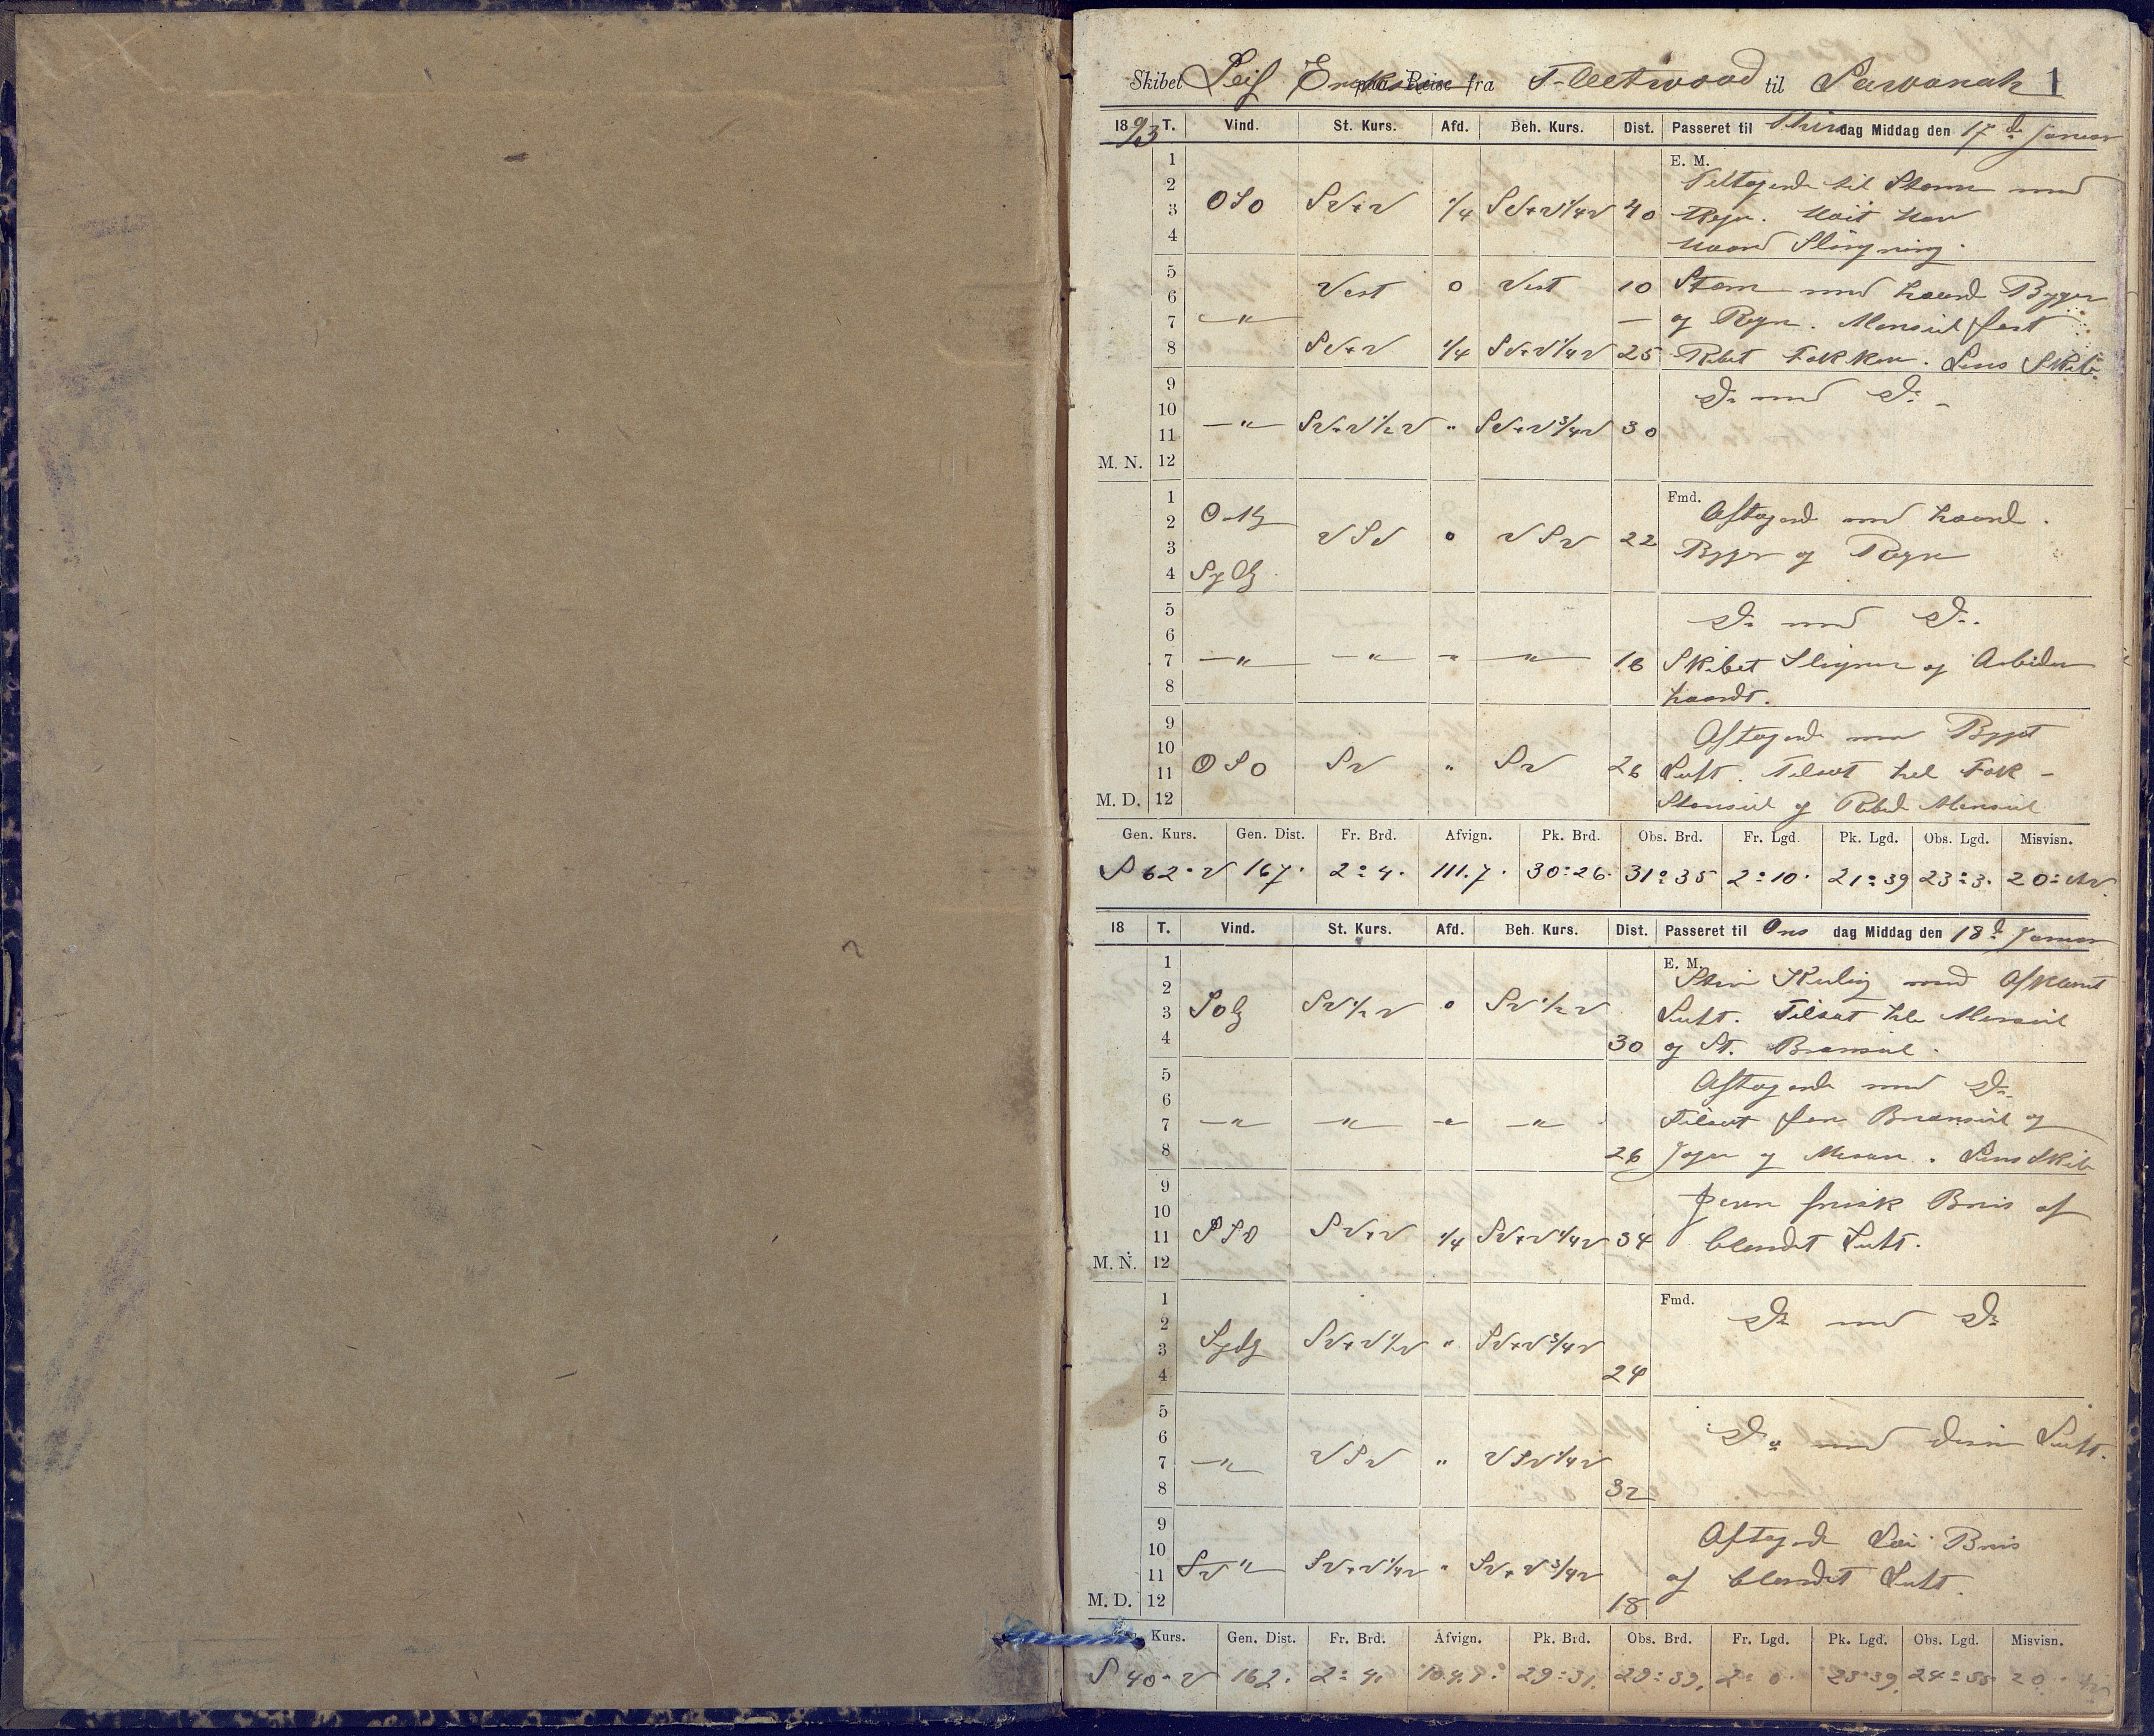 Skibet Leif Erikson paa Reise fra Fleetwood til Savvanah 1
1893 T. Vind. St. Kurs. Afd. Beh. Kurs. Dist. Passeret til Thirsdag Middag den 17de Januar
1 E. M.
2 Tiltagende til Storm med
3 OSO SVtV 1/4 SVtV1/4V 40 Regn. Høit Hav
4 Haard Slingning.
5 Vest 0 Vest 10 Storm med haarde Byger
6
7 —"— — og Regn. Mersseil fast
8 SVtV 1/4 SVtV1/4V 25 Rebet Fokken. Lens Skib.
9 Do med Do
10
11 —"— SVtV1/2V " SVtV3/4V 30
M. N. 12
1 Fmd.
2 Aftagende med haarde
3 VSV 0 VSV 22 Byger og Regn
4
5 Do med Do.
6
7 —"— —"— " —"— 18 Skibet Slingrer og Arbeider
8 haardt.
9 Aftagende med Byget
10
11 OSO SV " SV 26 Luft. Tilsat hel Fok-
M. D. 12 og Rebet Mersseil
Gen. Kurs. Gen. Dist. Fr. Brd. Afvign. Pk. Brd. Obs. Brd. Fr. Lgd. Pk. Lgd. Obs. Lgd. Misvisn.
S 62° V 167. 2°4. 111.7. 30°26. 31°35 2°10. 21°39 23°3. 20°
18 T. Vind. St. Kurs. Afd. Beh. Kurs. Dist. Passeret til Ons dag Middag den 18de Januar
1 E. M.
2 Stiv Kuling med Afklaret
3 SV1/2V 0 SV1/2V Luft. Tilsat hele Mersseil
4 30 og St. Bramseil.
5 Aftagende med Do
6
7 —"— —"— " —"— Tilsat for Bramseil og
8 26 Jager og Mesan. Lens Skib
9 Jevn frisk Bris af
10
11 SSO SVtV 1/4 SVtV1/4V 34 blandet Luft.
M. N. 12
1 Fmd.
2 Do med Do
3 Sydlg SVtV1/2V " SVtV3/4V
4 24
5
6 Do med Luft.
7 —"— VSV " VSV1/4V
8 32
9 Aftagende Bris
10
11 SVtV1/4V " SVtV3/4V af blandet Luft.
M. D. 12 18
Kurs. Gen. Dist. Fr. Brd. Afvign. Pk. Brd. Obs. Brd. Fr. Lgd. Pk. Lgd. Obs. Lgd. Misvisn.
S 40° V 162. 2°4. 29°31. 29°39. 2°0. 23°39. 24°55 20